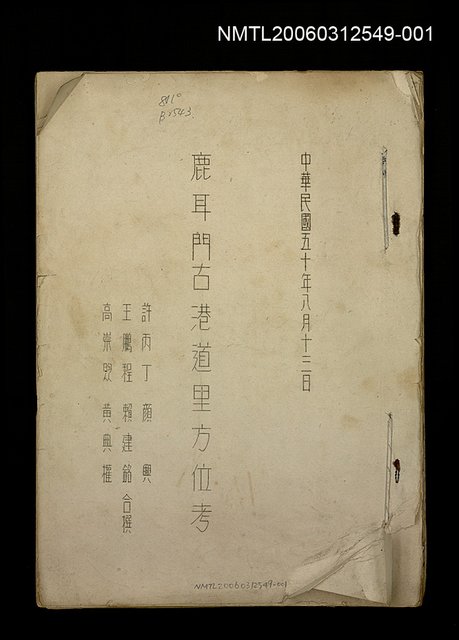 NMTL20060312549-001
中華民國五十年八月十三日
鹿耳門古港道里方位考
許丙丁 顏興
王鵬程 賴建銘 合撰
高崇煦 黃典權
NMTL20060312549-001